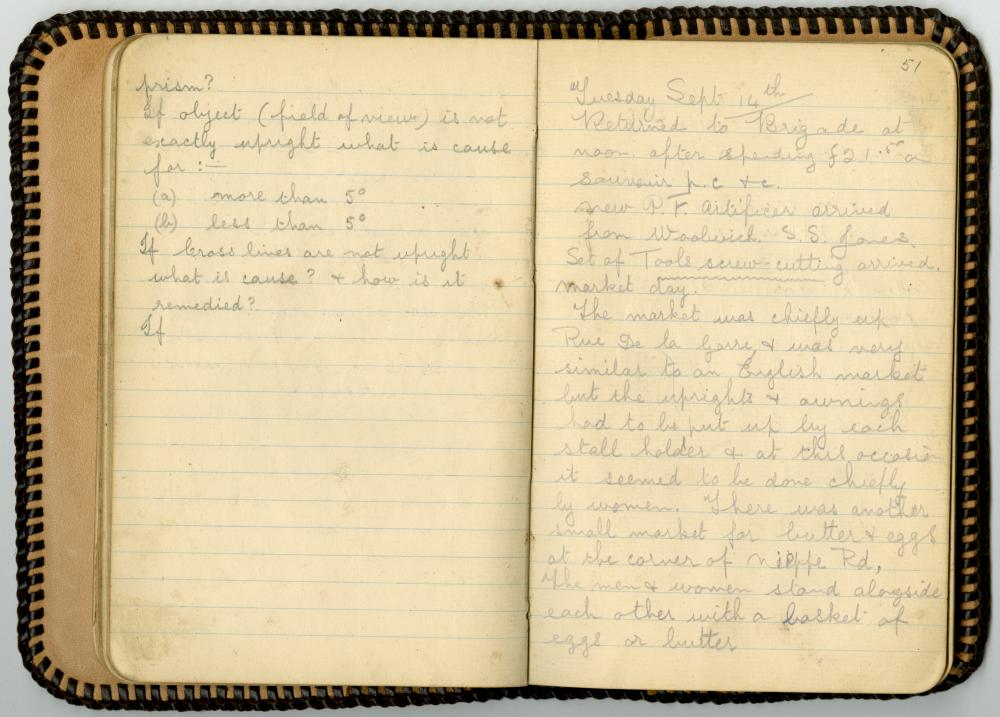 prism?
If object (field of view) is not
exactly upright what is cause
for :-
(a) more than 5°
(b) less than 5°
If Cross lines are not upright
what is cause? & how is it
remedied?
If
51
Tuesday Sept 14th
Returned to Brigade at
noon. after spending £21.50 on
souvenir p.c &c.
new P.F. Artificer arrived
from Woolwich. S.S. Jones.
Set of Tools screw-cutting arrived.
market day.
The market was chiefly up
Rue De la & was very
similar to an English market
but the uprights & awnings
had to be put up by each
stall holder & at this occasion
it seemed to be done chiefly
by women. There was another
small market for butter & eggs
at the corner of Nieppe Rd,
The men & women stand alongside
each other with a basket of
eggs or butter